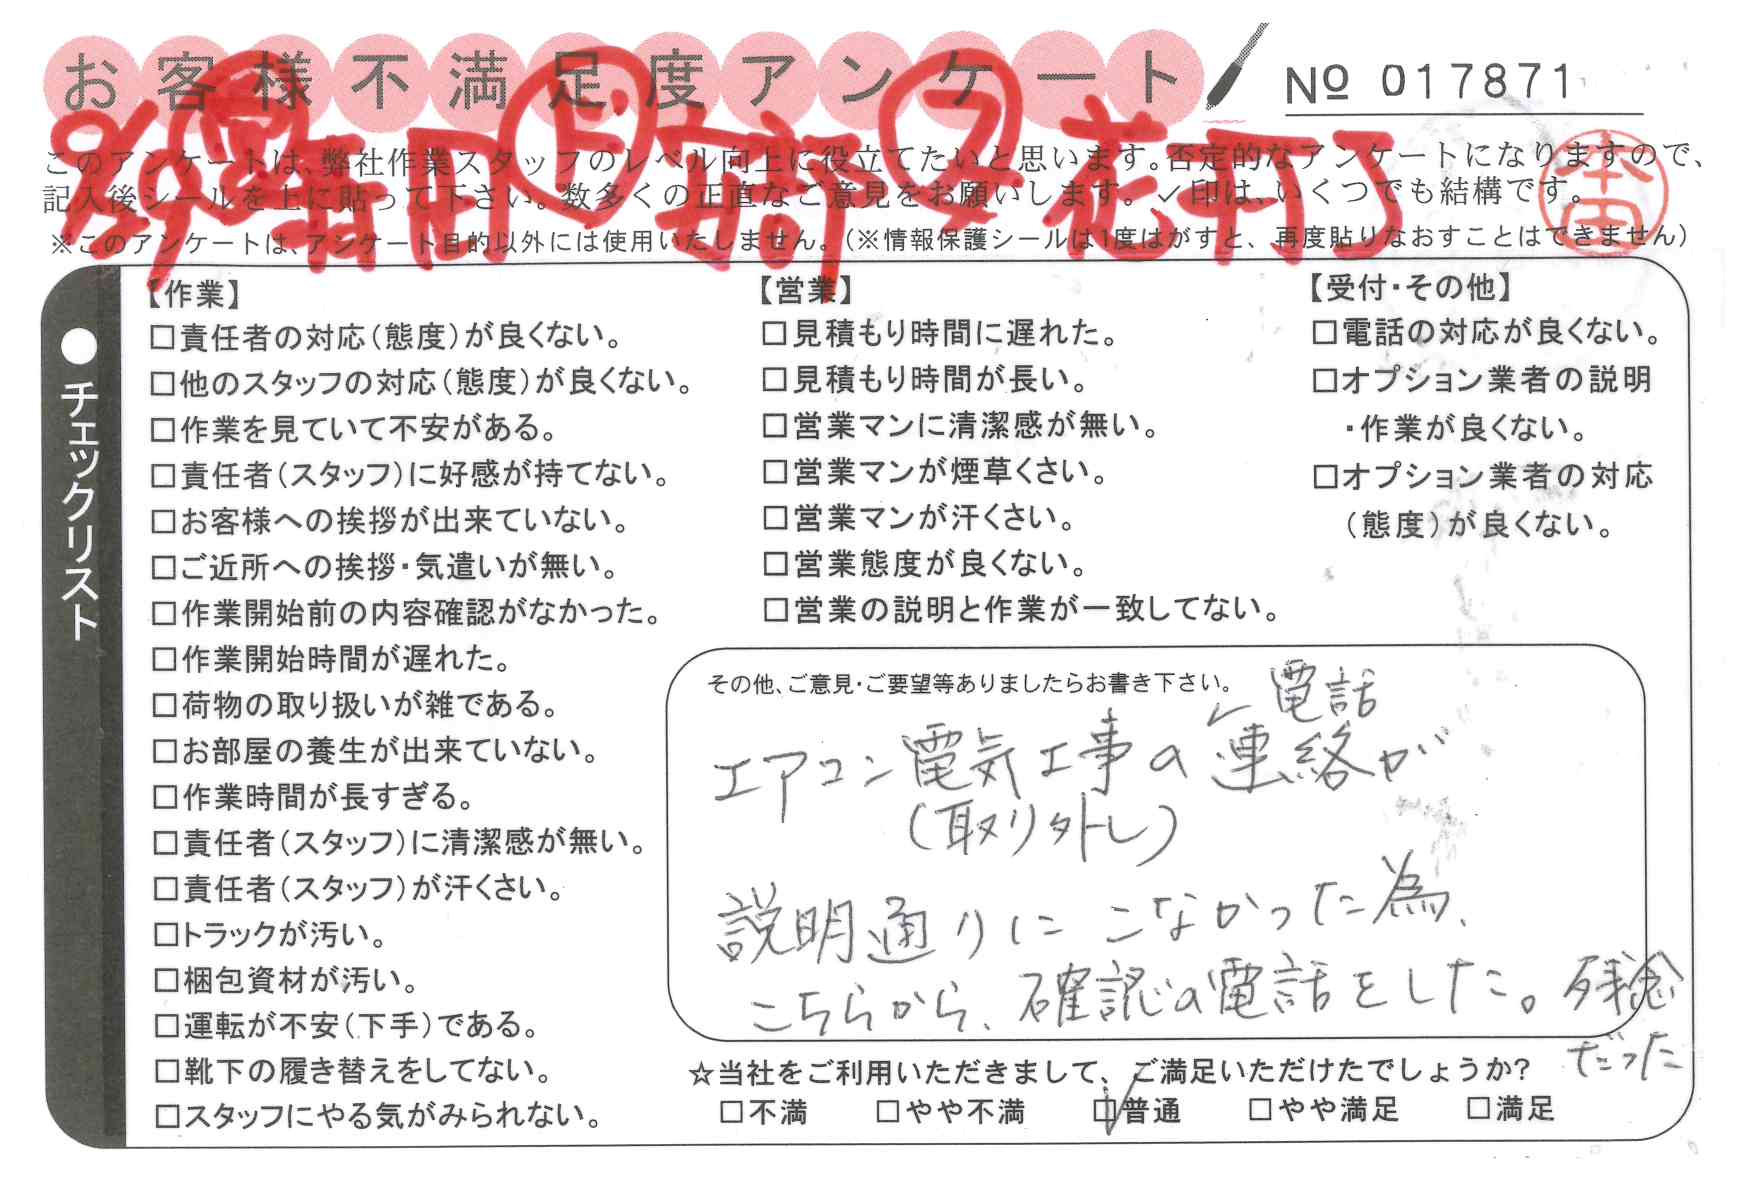 お客様不満足度アンケート
№ 017871
このアンケートは、弊社作業スタッフのレベル向上に役立てたいと思います。否定的なアンケートになりますので、
記入後シールを上に貼って下さい。数多くの正直なご意見をお願いします。✓印は、いくつでも結構です。
※このアンケートは、アンケート目的以外には使用いたしません。(※情報保護シールは1度はがすと、再度貼りなおすことはできません)
本田
●チェックリスト
【作業】
□責任者の対応(態度)が良くない。
□他のスタッフの対応(態度)が良くない。
□作業を見ていて不安がある。
□責任者(スタッフ)に好感が持てない。
□お客様への挨拶が出来ていない。
□ご近所への挨拶・気遣いが無い。
□作業開始前の内容確認がなかった。
□作業開始時間が遅れた。
□荷物の取り扱いが雑である。
□お部屋の養生が出来ていない。
□作業時間が長すぎる。
□責任者(スタッフ)に清潔感が無い。
□責任者(スタッフ)が汗くさい。
□トラックが汚い。
□梱包資材が汚い。
□運転が不安(下手)である。
□靴下の履き替えをしてない。
□スタッフにやる気がみられない。
【営業】
□見積もり時間に遅れた。
□見積もり時間が長い。
□営業マンに清潔感が無い。
□営業マンが煙草くさい。
□営業マンが汗くさい。
□営業態度が良くない。
□営業の説明と作業が一致してない。
【受付・その他】
□電話の対応が良くない。
□オプション業者の説明
・作業が良くない。
□オプション業者の対応
(態度)が良くない。
その他、ご意見・ご要望等ありましたらお書き下さい。
電話
エアコン電気工事の連絡が
(取り外し)
説明通りにこなかった為、
こちらから、確認の電話をした。残念
だった
☆当社をご利用いただきまして、ご満足いただけたでしょうか?
□不満 □やや不満 ☑普通 □やや満足 □満足